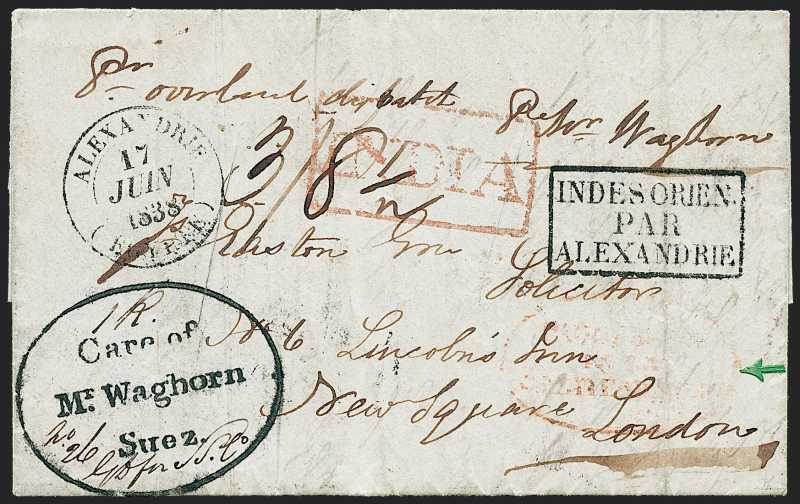 pr overland dispatch
per Mr Waghorn
ALEXANDRIE
17
JUIN
1838
3/8½
INDIA
INDES ORIEN.
PAR
ALEXANDRIE
Easton
Solicitor
No 6 Lincoln's Inn
New Square London
Care of
Mr. Waghorn
Suez.
No
26